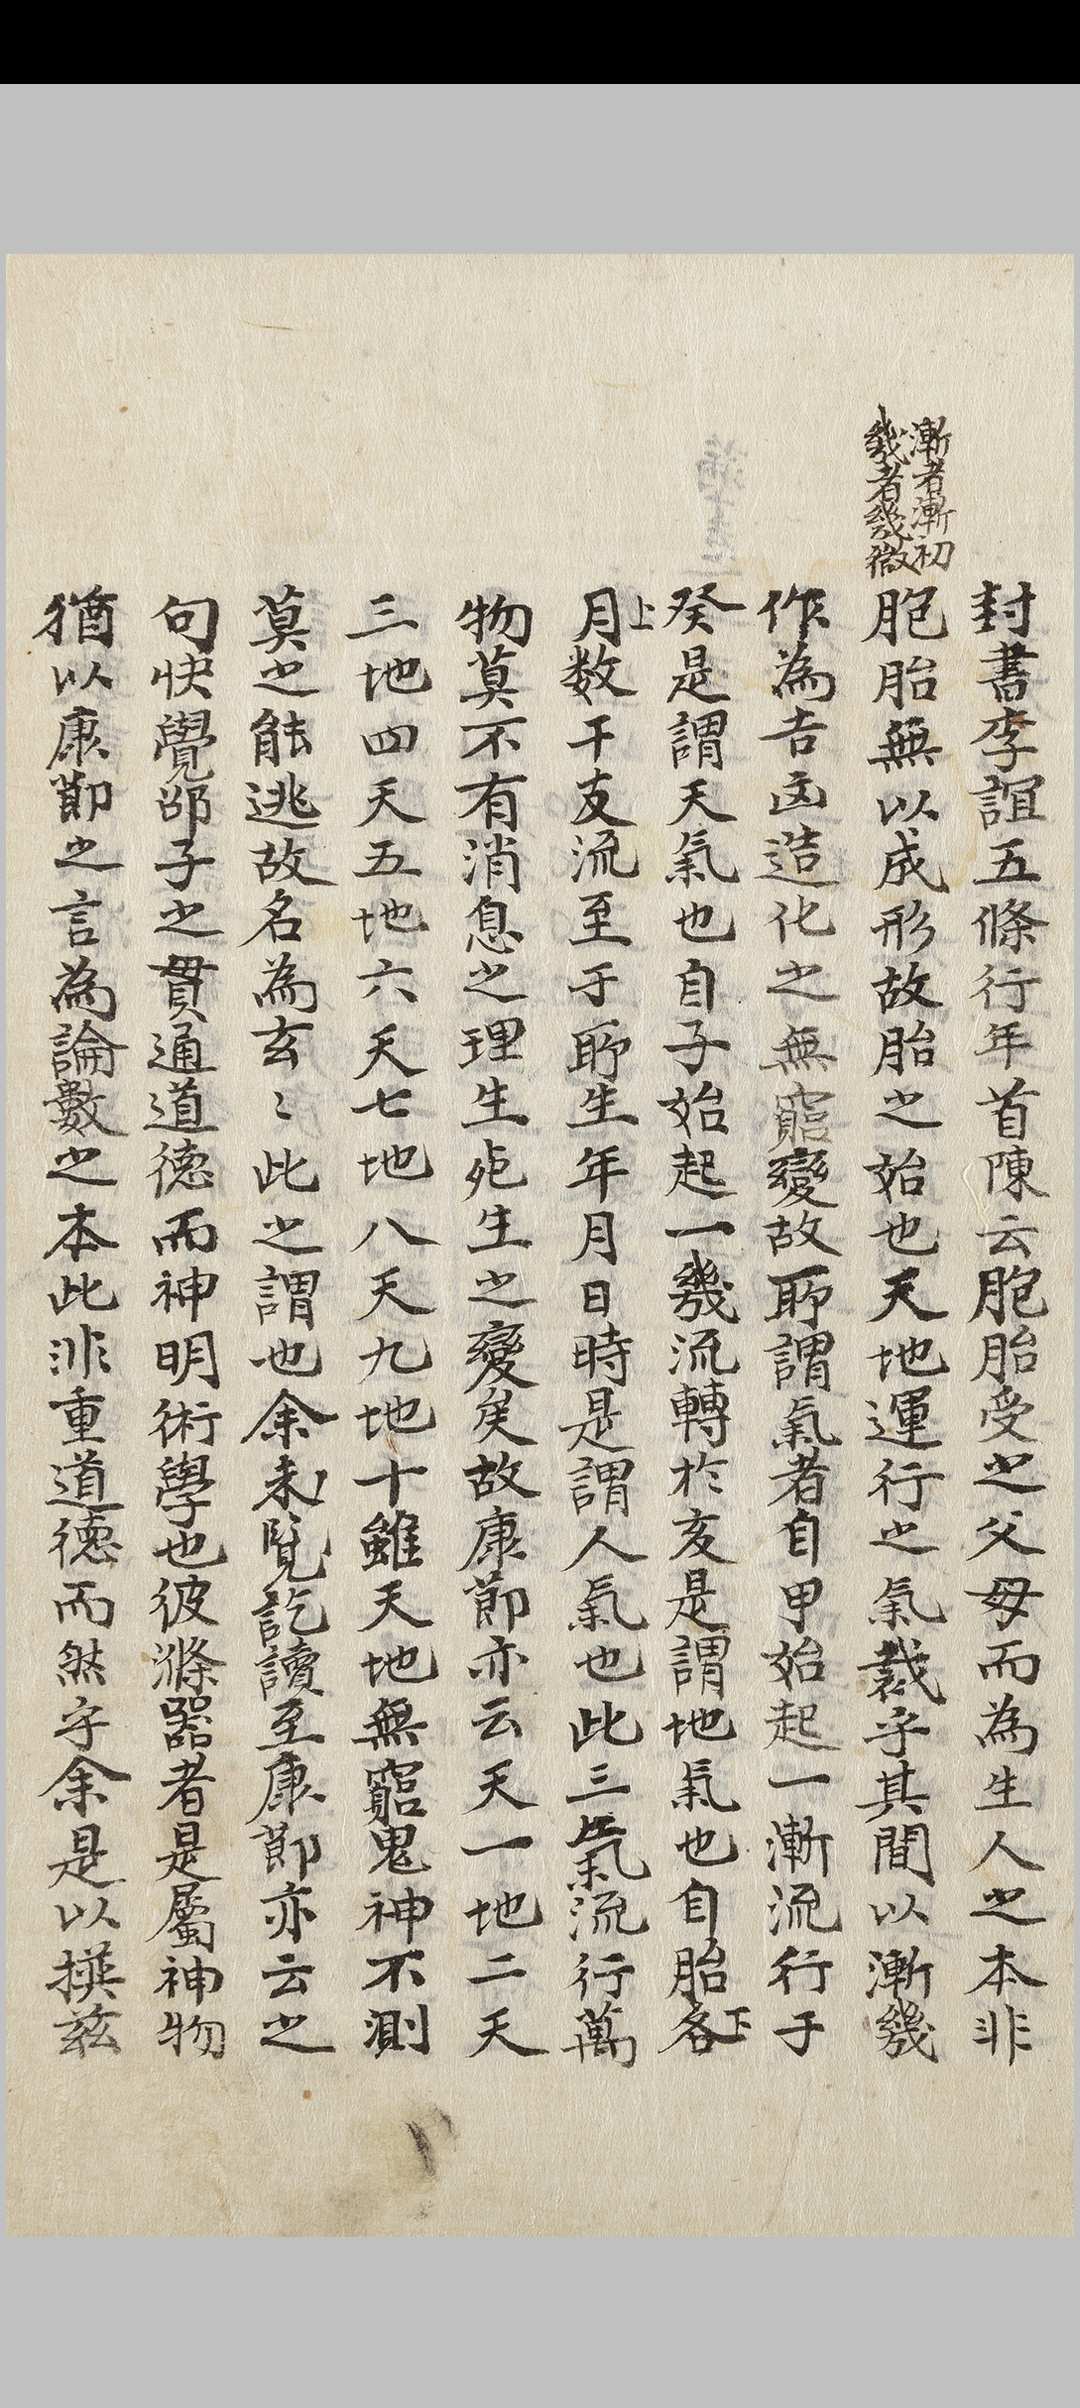 漸者漸初
幾者幾微
封書李誼五條行年首陳云胞胎受之父母而為生人之本非
胞胎無以成形故胎之始也天地運行之氣裁乎其間以漸幾
作為吉凶造化之無窮變故所謂氣者自甲始起一漸流行于
癸是謂天氣也自子始起一幾流轉於亥是謂地氣也自胎各下
月上数干支流至于所生年月日時是謂人氣也此三氣流行萬
物莫不有消息之理生死生之變矣故康節亦云天一地二天
三地四天五地六天七地八天九地十雖天地無窮鬼神不測
莫之能逃故名為玄〻此之謂也余未覧訖讀至康節亦云之
句快覺邵子之貫通道德而神明術學也彼滌器者是屬神物
猶以康節之言為論數之本此非重道德而然乎余是以撰茲